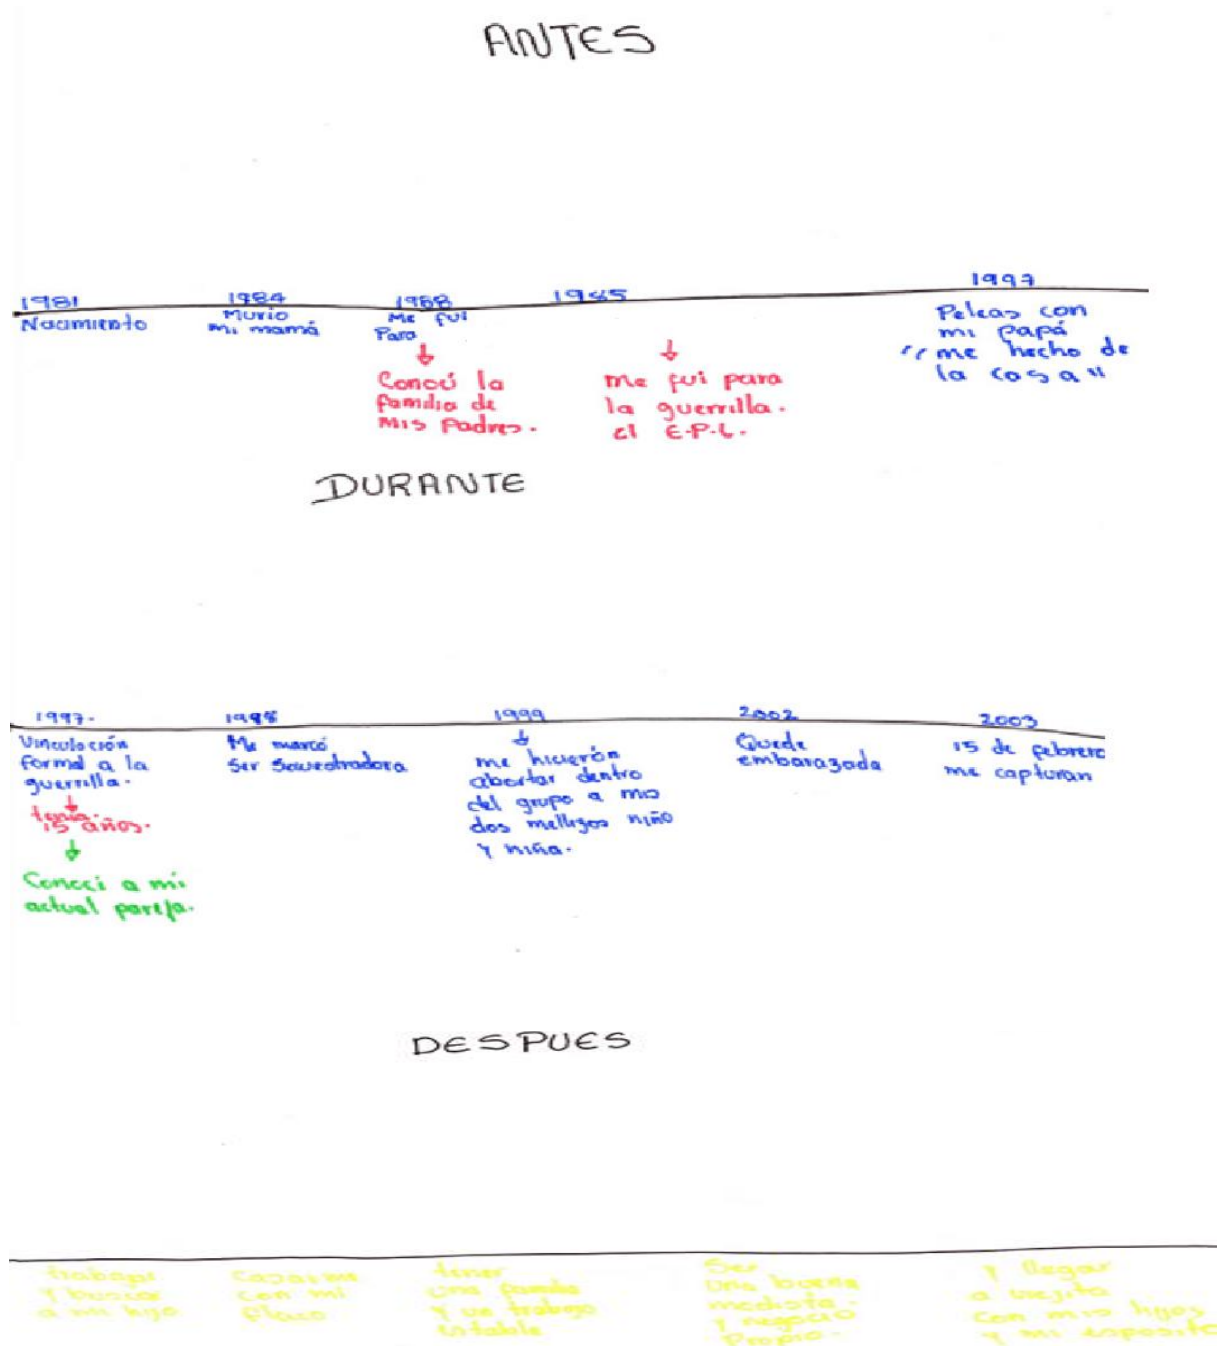 ANTES
1981
Nacimiento
1984
Murio
mi mamá
1988
Me fui
Para
Conocí la
familia de
Mis Padres.
1985
me fui para
la guerrilla.
el E.P.L.
1997
Peleas con
mi papá
"me hecho de
la casa"
DURANTE
1997.
Vinculoción
formal a la
guerrilla.
tenía
15 años.
Conoci a mi
actual pareja.
1998
Me marcó
Ser Secuestradora
1999
me hicierón
abortar dentro
del grupo a mis
dos mellizos niño
y niña.
2002
Quede
embarazada
2003
15 de febrero
me capturan
DESPUES
trabajar
Y buscar
a mi hijo
casarme
con mi
flaco
tener
una familia
Y un trabajo
estable
Ser
una buena
modista.
Y negocio
Propio.
Y llegar
a viejita
con mis hijos
Y mi esposito